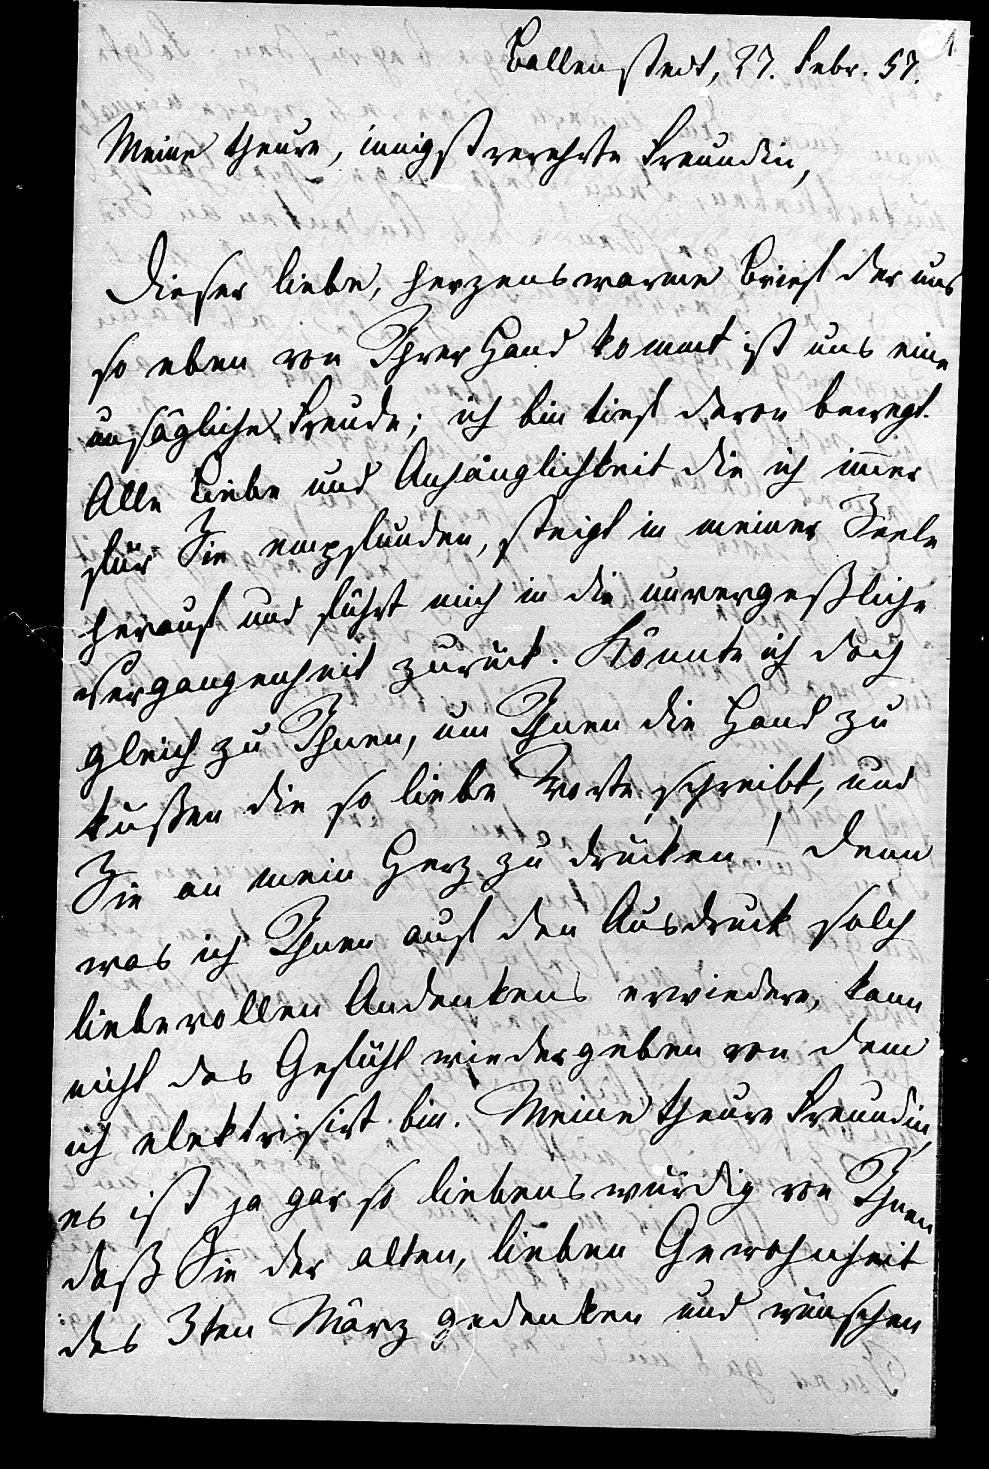 1
Ballenstedt, 27. Febr. 57.
Meine theure, innigstverehrte Freundin,
Dieser liebe, herzenswarme Brief der uns
so eben von Ihrer Hand kommt ist uns eine
unsägliche Freude; ich bin tief davon bewegt.
Alle Liebe und Anhänglichkeit die ich immer
für Sie empfunden, steigt in meiner Seele
herauf und führt mich in die unvergeßliche
Vergangenheit zurück. Könnte ich doch
gleich zu Ihnen, um Ihnen die Hand zu
küßen die so liebe Worte schreibt, und
Sie an mein Herz zu drücken! Denn
was ich Ihnen auf den Ausdruck solch
liebevollen Andenkens erwiedere, kann
nicht das Gefühl wiedergeben von dem
ich elektrisirt bin. Meine theure Freundin,
es ist ja gar so liebenswürdig von Ihnen
daß Sie der alten, lieben Gewohnheit
des 3ten März gedenken und wünschen